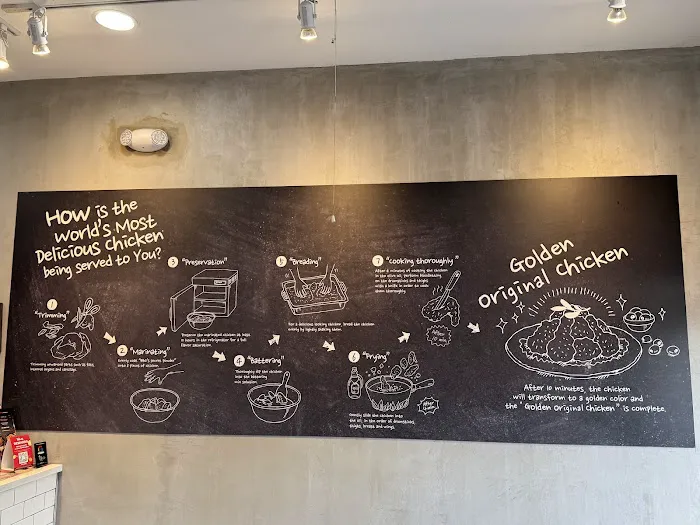 HOW is the
world's Most
Delicious Chicken
being served to You?
1
"Trimming"
Trimming unwanted parts such as fats,
internal organs and cartilage.
2
"Marinating"
8 pieces of chicken.
3
"Preservation"
Preserve the marinated chicken 24 hours in
hours in the refrigerator for a full
flavor saturation.
4
"Battering"
Thoroughly dip the chicken
into the battering
mix solution.
5
"Breading"
For a delicious looking chicken, bread the chicken
evenly by lightly shaking them.
6
"Frying"
Gently slide the chicken into
the oil in the order of drumsticks,
thighs, breast and wings.
After
7
"Cooking thoroughly"
After 8 minutes of cooking the chicken
in the olive oil, perform
on the drumsticks and thighs
with a knife in order to cook
them thoroughly.
After
10 min.
Golden
Original Chicken
After 10 minutes, the chicken
will transform to a golden color and
the "Golden Original Chicken" is complete.